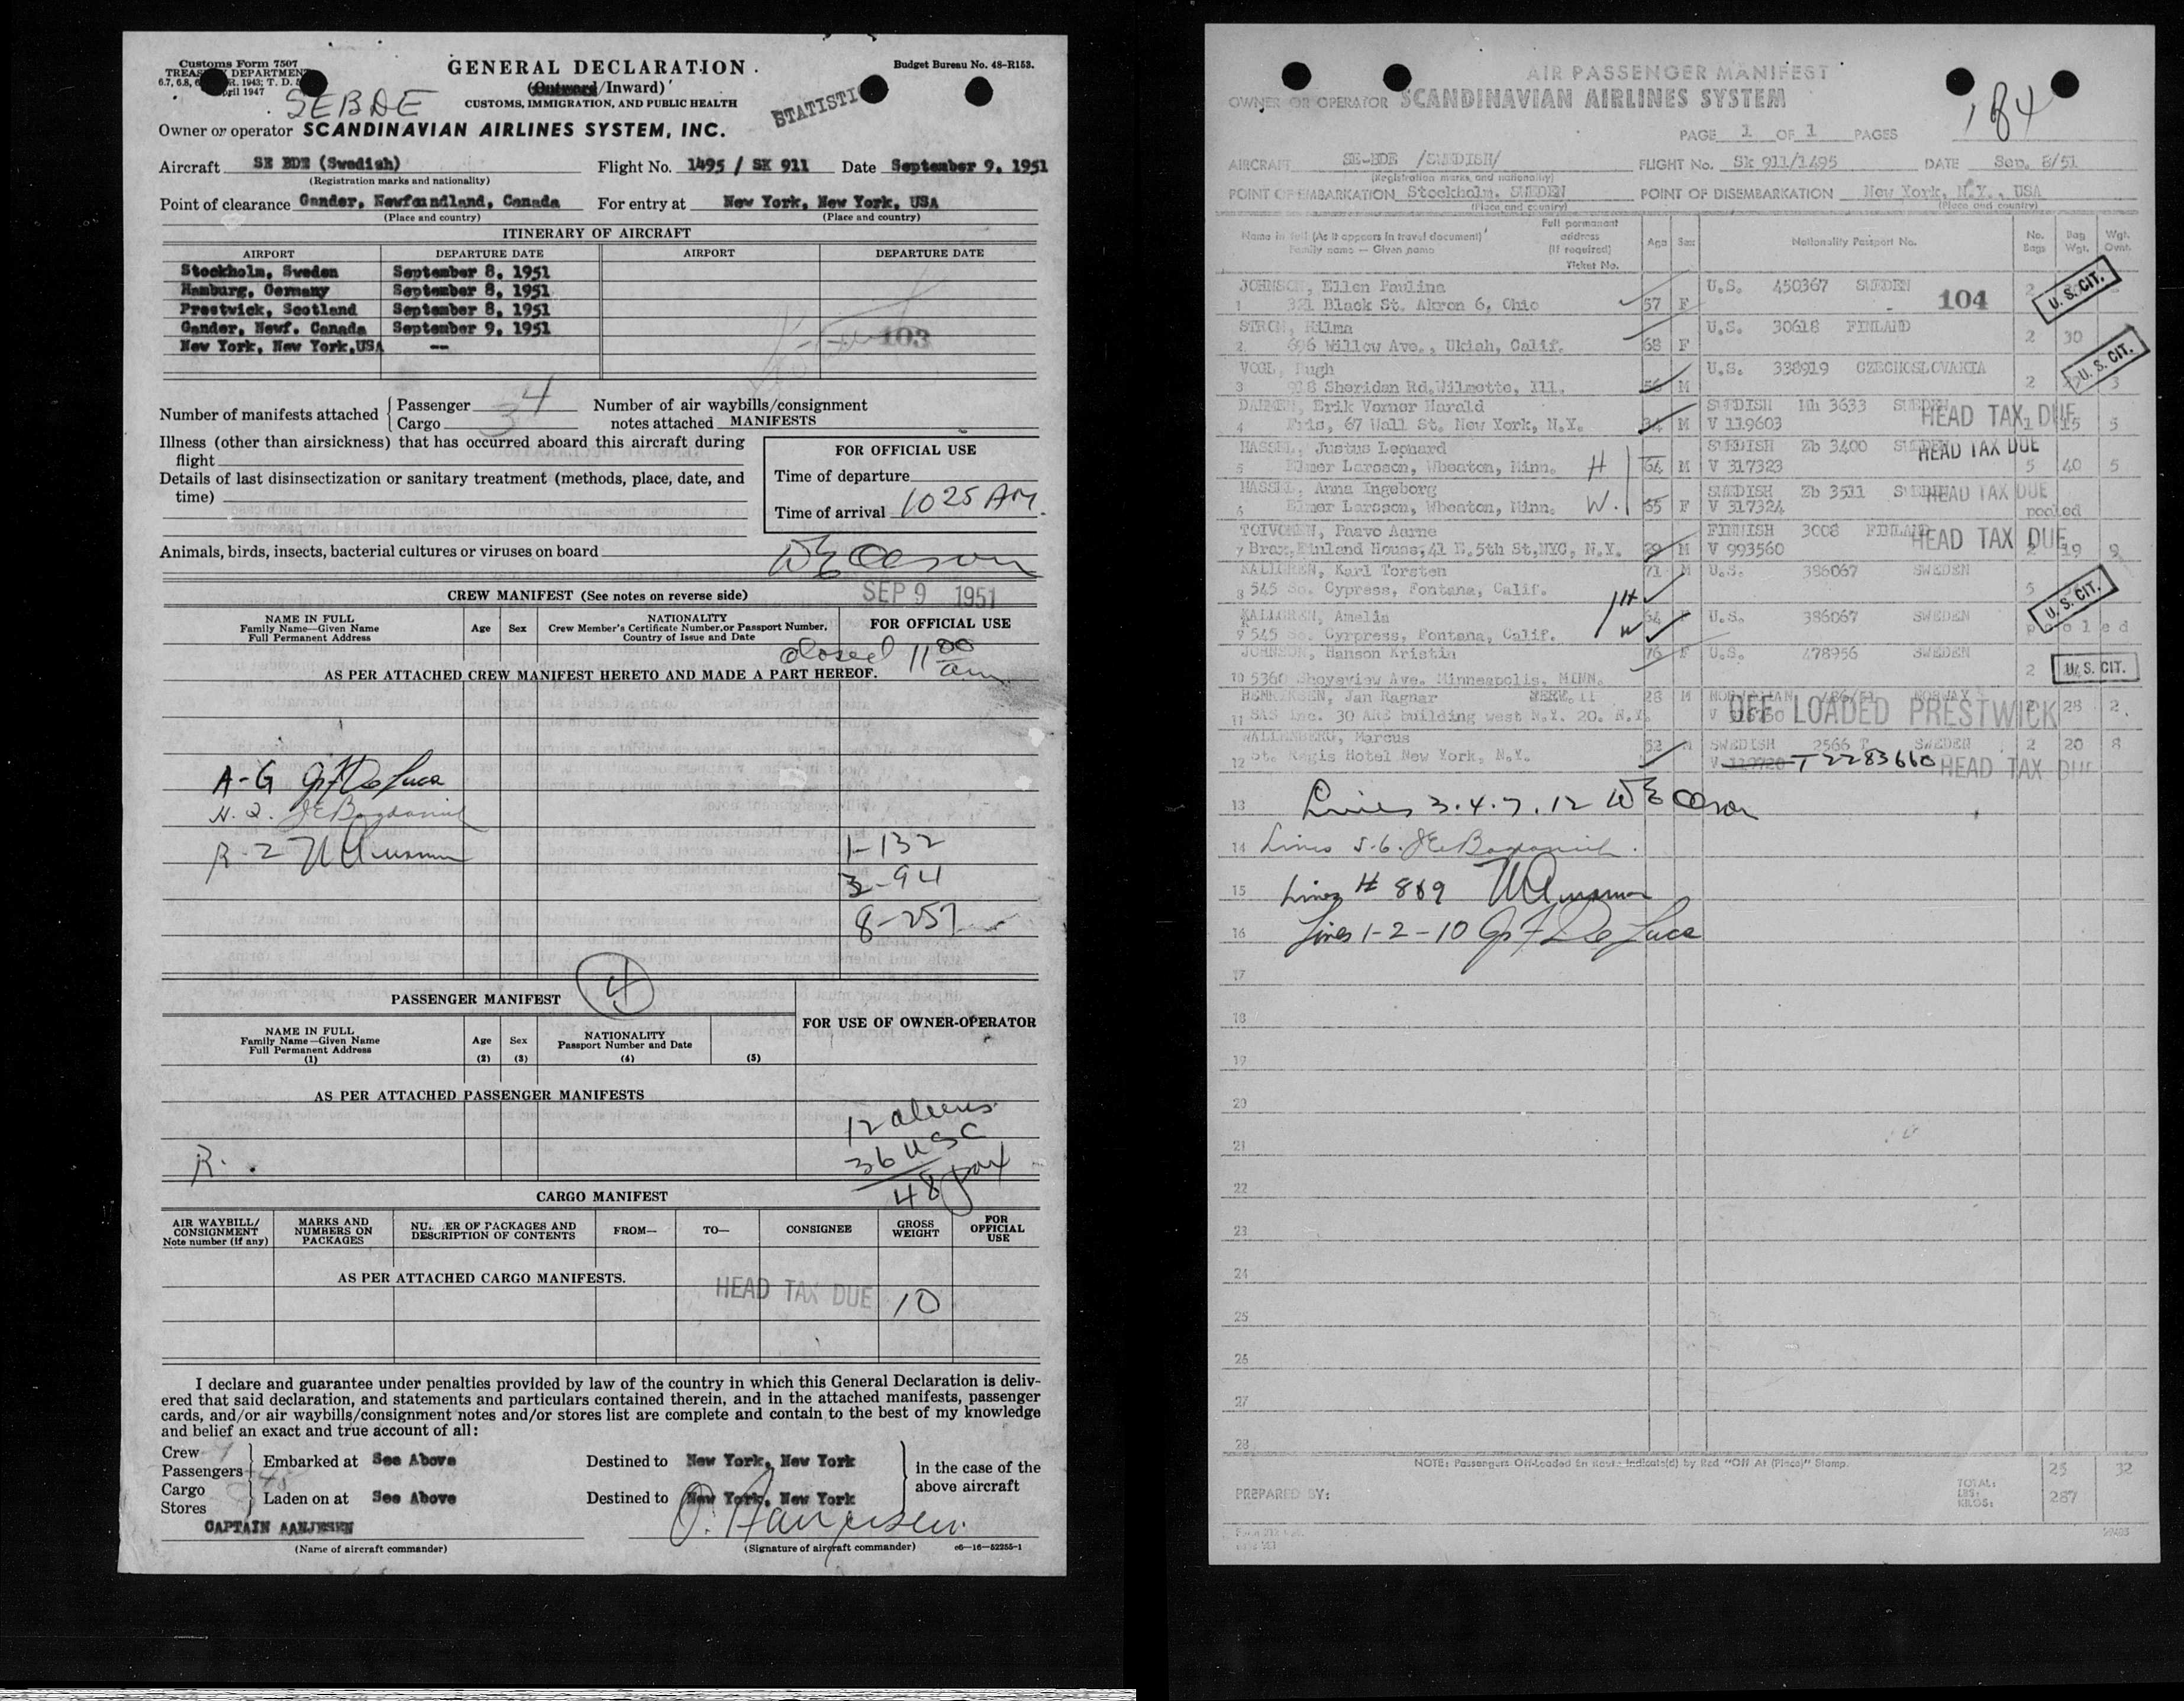 Customs Form 7507
TREASURY DEPARTMENT
1943; T. D.
April 1947
GENERAL DECLARATION
(Outward/Inward)
CUSTOMS, IMMIGRATION, AND PUBLIC HEALTH
Budget Bureau No. 48-R153.
SEBDE
STATISTI
Owner or operator SCANDINAVIAN AIRLINES SYSTEM, INC.
Aircraft SE BDE (Swedish) Flight No. 1495 / SK 911 Date September 9, 1951
(Registration marks and nationality)
Point of clearance Gander, Newfoundland, Canada For entry at New York, New York, USA
(Place and country) (Place and country)
ITINERARY OF AIRCRAFT
AIRPORT DEPARTURE DATE AIRPORT DEPARTURE DATE
Stockholm, Sweden September 8, 1951
Hamburg, Germany September 8, 1951
Prestwick, Scotland September 8, 1951
Gander, Newf. Canada September 9, 1951
103
New York, New York,USA --
Number of manifests attached Passenger 4 Cargo 3
Number of air waybills/consignment notes attached MANIFESTS
Illness (other than airsickness) that has occurred aboard this aircraft during
flight
Details of last disinsectization or sanitary treatment (methods, place, date, and
time)
FOR OFFICIAL USE
Time of departure
Time of arrival 1025 AM.
Animals, birds, insects, bacterial cultures or viruses on board
SEP 9 1951
CREW MANIFEST (See notes on reverse side)
NAME IN FULL
Family Name—Given Name
Full Permanent Address
Age Sex
NATIONALITY
Crew Member's Certificate Number, or Passport Number,
Country of Issue and Date
FOR OFFICIAL USE
closed 11 00 am
AS PER ATTACHED CREW MANIFEST HERETO AND MADE A PART HEREOF.
A-G
H.Q.
R-2
1-132
3-94
8-257
4
PASSENGER MANIFEST
NAME IN FULL
Family Name—Given Name
Full Permanent Address
(1)
Age
(2)
Sex
(3)
NATIONALITY
Passport Number and Date
(4)
(5)
FOR USE OF OWNER-OPERATOR
AS PER ATTACHED PASSENGER MANIFESTS
12 aliens
36 USC
48 pax
R.
CARGO MANIFEST
AIR WAYBILL/
CONSIGNMENT
Note number (if any)
MARKS AND
NUMBERS ON
PACKAGES
NUMBER OF PACKAGES AND
DESCRIPTION OF CONTENTS
FROM— TO— CONSIGNEE
GROSS
WEIGHT
FOR
OFFICIAL
USE
AS PER ATTACHED CARGO MANIFESTS.
HEAD TAX DUE 10
I declare and guarantee under penalties provided by law of the country in which this General Declaration is deliv-
ered that said declaration, and statements and particulars contained therein, and in the attached manifests, passenger
cards, and/or air waybills/consignment notes and/or stores list are complete and contain to the best of my knowledge
and belief an exact and true account of all:
Crew
Passengers 48
Cargo
Stores
Embarked at See Above Destined to New York, New York
Laden on at See Above Destined to New York, New York
in the case of the
above aircraft
CAPTAIN AANJESEN
O. Aanjesen.
(Name of aircraft commander) (Signature of aircraft commander) c6—16—52255-1
AIR PASSENGER MANIFEST
OWNER OR OPERATOR SCANDINAVIAN AIRLINES SYSTEM
PAGE 1 OF 1 PAGES
AIRCRAFT SE-BDE /SWEDISH/ FLIGHT No. Sk 911/1495 DATE Sep. 8/51
(Registration marks and nationality)
POINT OF EMBARKATION Stockholm. SWEDEN POINT OF DISEMBARKATION New York, N.Y., USA
(Place and country) (Place and country)
Name in full (As it appears in travel document)
Family name — Given name
Full permanent
address
(If required)
Ticket No.
Age Sex Nationality Passport No.
No.
Bags
Bag
Wgt.
Wgt.
Ovnt.
JOHNSON, Ellen Paulina U.S. 450367 SWEDEN 2
1 321 Black St. Akron 6, Ohio 57 F 104 U.S. CIT.
STROM, Hilma U.S. 30618 FINLAND
2 696 Willow Ave., Ukiah, Calif. 68 F 2 30
VOGL, Hugh U.S. 338919 CZECHOSLOVAKIA
3 918 Sheridan Rd,Wilmette, Ill. 56 M 2 3 U.S. CIT.
Erik Verner Harald SWEDISH Hh 3633 SWEDEN
4 67 Wall St. New York, N.Y. 34 M V 119603 HEAD TAX DUE 15 5
HASSEL, Justus Leonard SWEDISH Zb 3400 SWEDEN HEAD TAX DUE
5 Elmer Larsson, Wheaton, Minn. H 64 M V 317323 5 40 5
HASSEL, Anna Ingeborg SWEDISH Zb 3511 SWEDEN HEAD TAX DUE
6 Elmer Larsson, Wheaton, Minn. W. 65 F V 317324 pooled
TOIVONEN, Paavo Aarne FINNISH 3008 FINLAND HEAD TAX DUE
7 Brax,Finland House,41 E.5th St,NYC, N.Y. 29 M V 993560 2 19 9
KALLGREN, Karl Torsten 71 M U.S. 386067 SWEDEN
8 545 So. Cypress, Fontana, Calif. H 5
KALLGREN, Amelia 64 F U.S. 386067 SWEDEN U.S. CIT.
9 545 So. Cyrpress, Fontana, Calif. W pooled
JOHNSON, Hanson Kristin 76 F U.S. 478956 SWEDEN
10 5360 Shoreview Ave. Minneapolis, MINN. 2 U.S. CIT.
HENRIKSEN, Jan Ragnar 28 M NORWEGIAN NORWAY
11 SAS Inc. 30 ARE building west N.Y. 20. N.Y. V OFF LOADED PRESTWICK 28 2
WALLENBERG, Marcus 52 M SWEDISH 2566 SWEDEN 2 20 8
12 St. Regis Hotel New York, N.Y. V 119720 T2283660 HEAD TAX DUE
13 Lines 3.4.7.12
14 Lines 5-6.
15 Lines # 8&9
16 Lines 1-2-10
17
18
19
20
21
22
23
24
25
26
27
28
NOTE: Passengers Off-Loaded En Route Indicate(d) by Red "Off At (Place)" Stamp.
PREPARED BY:
TOTAL: 25 32
LBS:
KILOS: 287